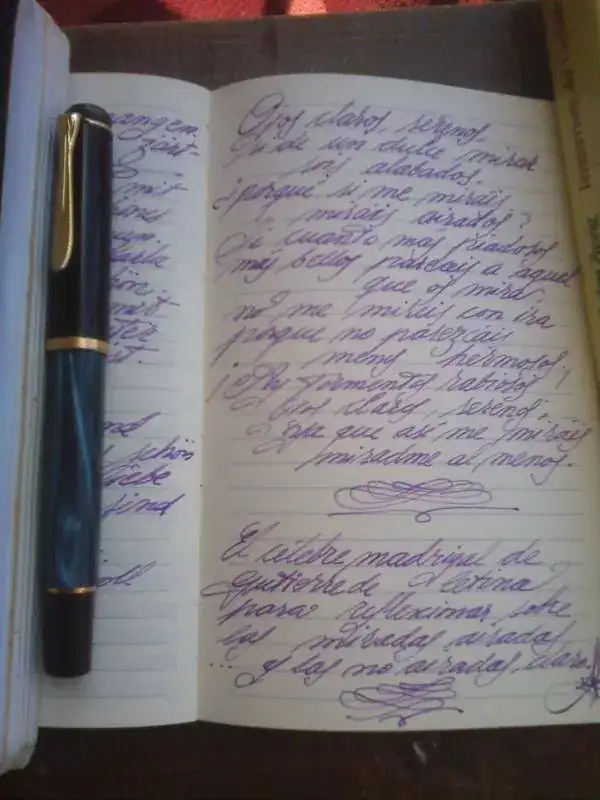 angen
zart-
mit
eine
mit
ter
st.
nd
schön
Liebe
sind
oll
Ojos claros, serenos,
si de un dulce mirar
sois alabados,
¿porqué si me miráis
miráis airados?
Si cuanto más piadosos
más bellos parecéis a aquel
que os mira,
no me miréis con ira
porque no parezcáis
menos hermosos,
¡Ay tormentos rabiosos!
Ojos claros, serenos,
ya que así me miráis
miradme al menos.
El célebre madrigal de
Gutierre de Cetina
para reflexionar sobre
las miradas airadas
... y las no airadas, claro.